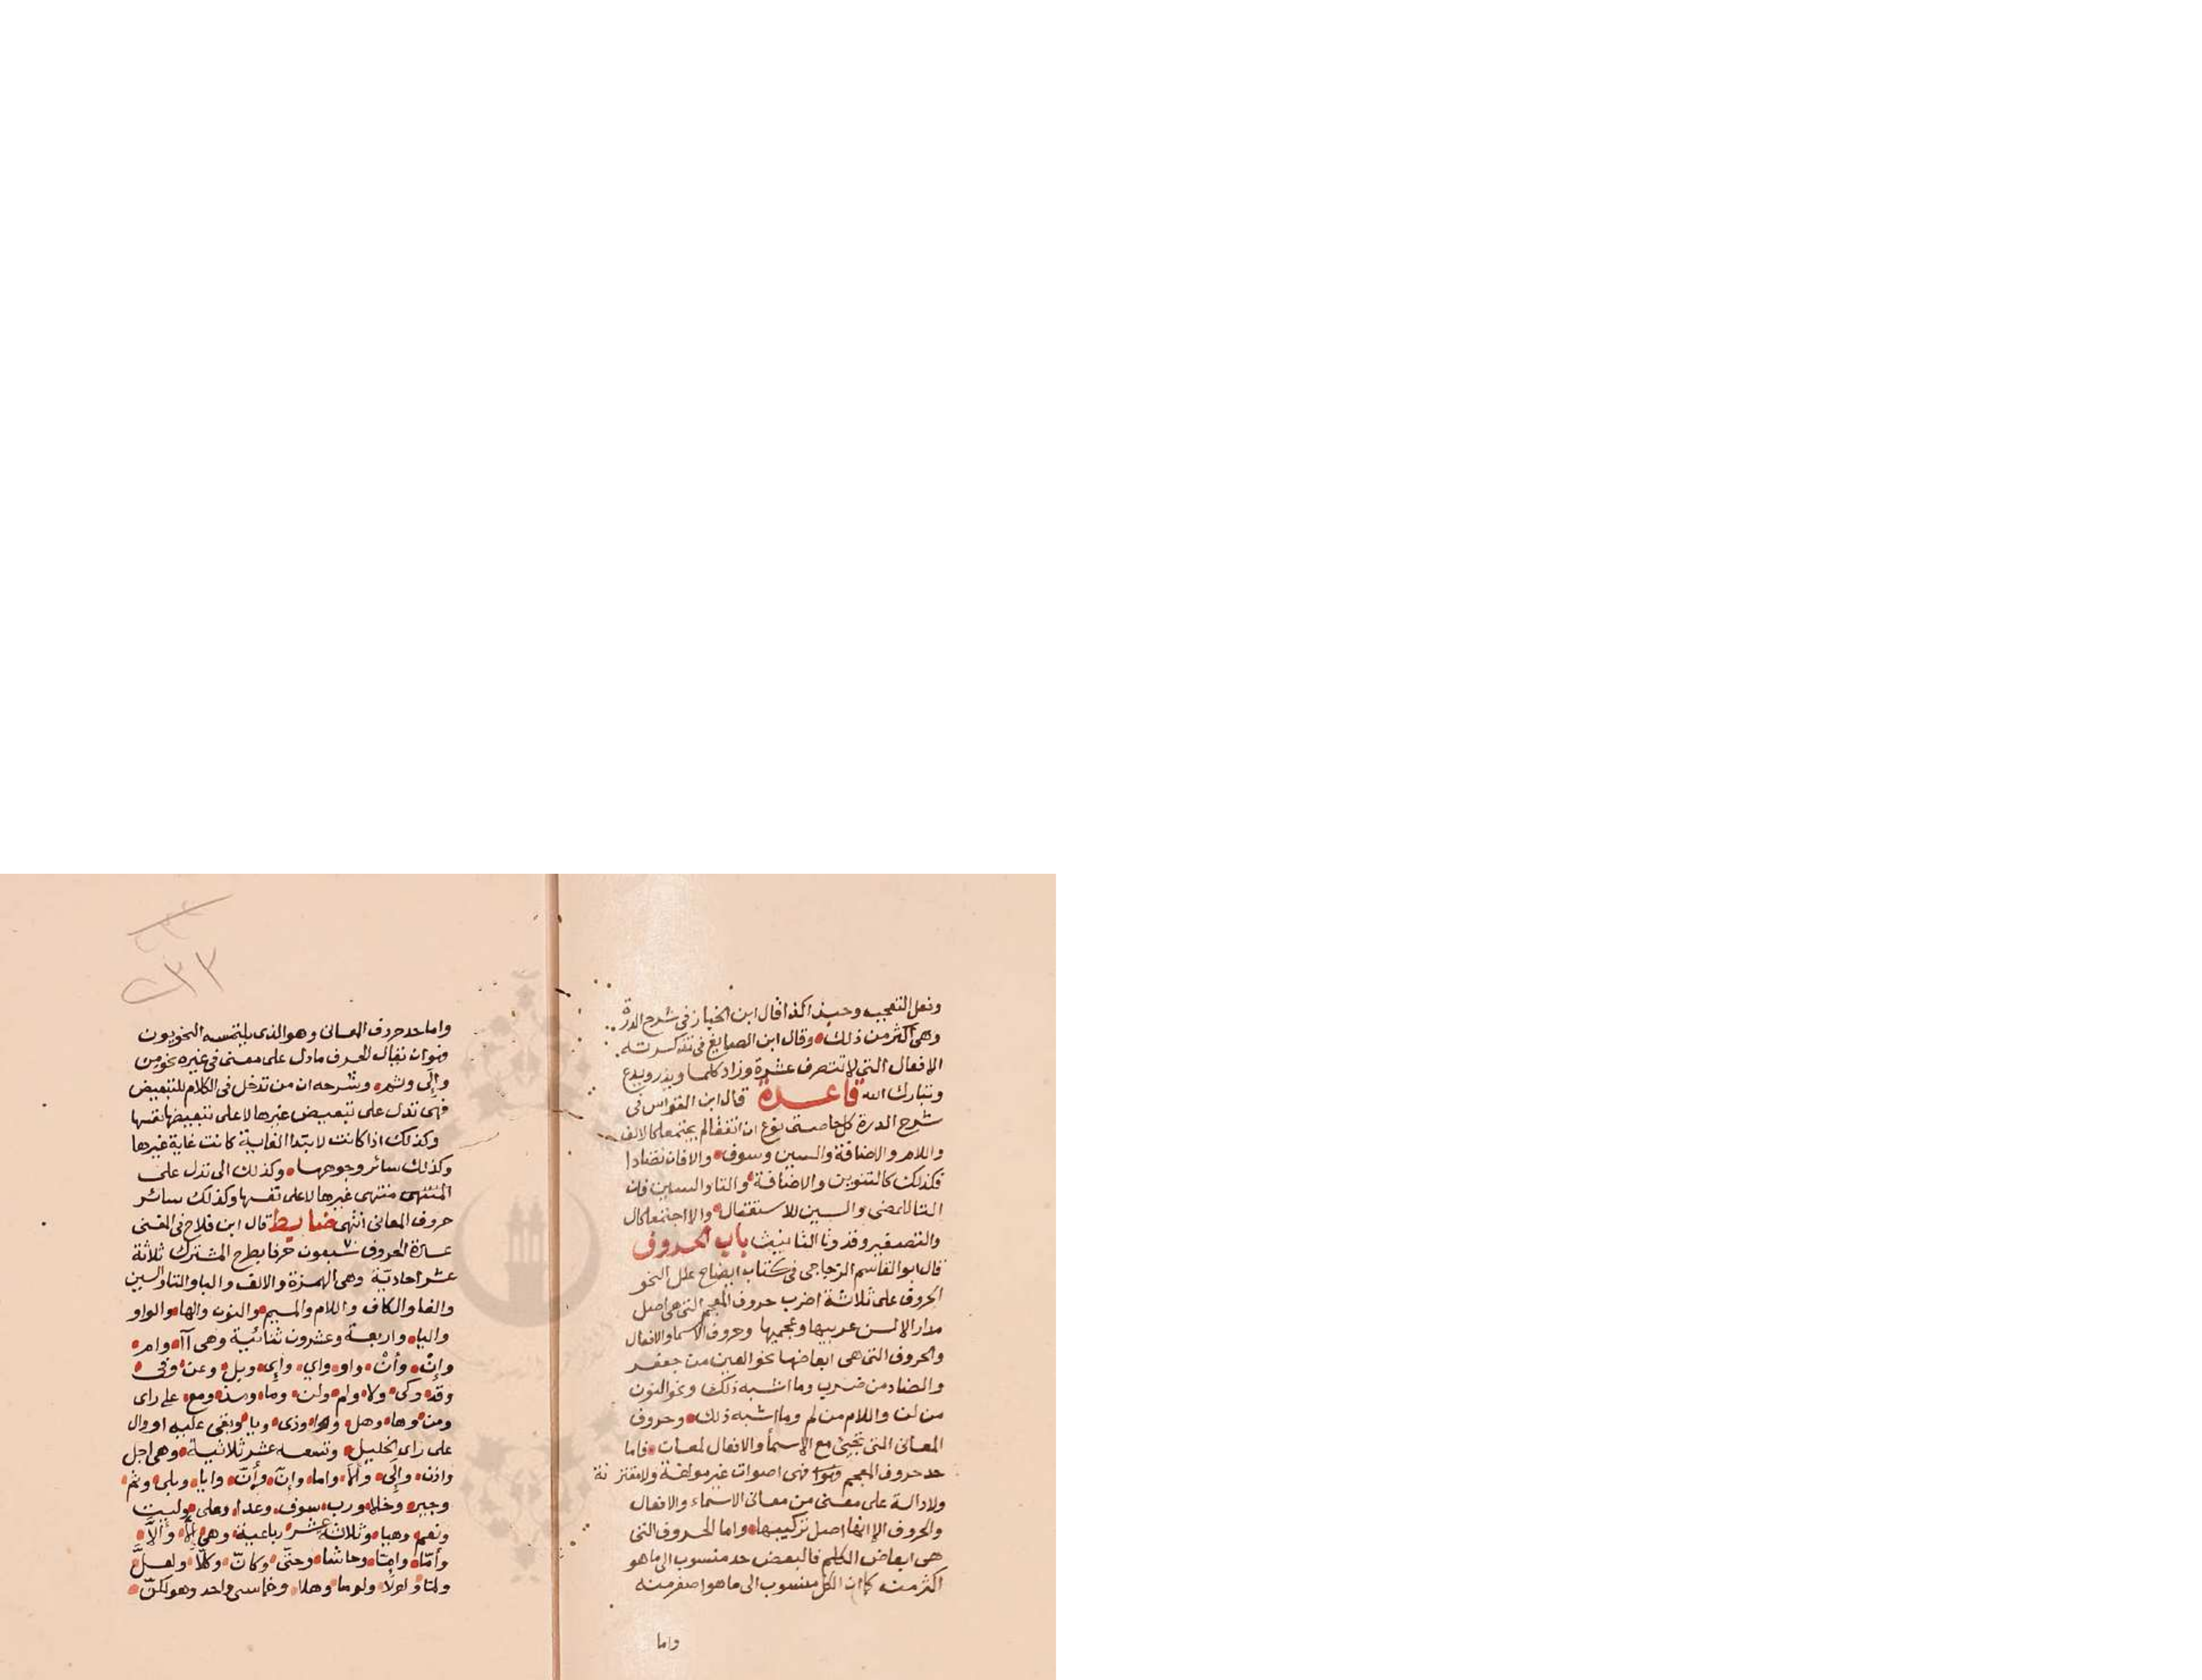 وفعل التعجب وحبذا كذا قال ابن الخباز فى شرح الدرة
وهى اكثر من ذلك وقال ابن الصايغ فى تذكرته
الافعال التى لا تتصرف عشرة وزاد كلما ويذر ويدع
وتبارك الله قاعدة قال ابن القواس فى
شرح الدرة كل خاصتى نوع ان اتفقا لم يجتمعا كالالف
واللام والاضافة والسين وسوف والا فان تضادا
فكذلك كالتنوين والاضافة والتا والسين فان
التا للمضى والسين للاستقبال والا اجتمعا كال
والتصغير وقد وتا التانيث باب الحروف
قال ابو القاسم الزجاجى فى كتاب ايضاح علل النحو
الحروف على ثلاثة اضرب حروف المعجم التى هى اصل
مدار الالسن عربيها وعجميها وحروف الاسما والافعال
والحروف التى هى ابعاضها نحو العين من جعفر
والضاد من ضرب وما اشبه ذلك ونحو النون
من لن واللام من لم وما اشبه ذلك وحروف
المعانى التى تجيئ مع الاسما والافعال لمعان فاما
حد حروف المعجم فهى اصوات غير مولفة ولا مقترنة
ولا دالة على معنى من معانى الاسماء والافعال
والحروف الا انها اصل تركيبها واما الحروف التى
هى ابعاض الكلم فالبعض حد منسوب الى ما هو
اكثر منه كما ان الكل منسوب الى ما هو اصغر منه
واما
٢٣٣
واما حد حروف المعانى وهو الذى يلتمسه النحويون
فهو ان يقال الحرف ما دل على معنى فى غيره نحو من
والى وثم وشرحه ان من تدخل فى الكلام للتبعيض
فهى تدل على تبعيض غيرها لا على تبعيضها نفسها
وكذلك اذا كانت لابتدا الغاية كانت غاية غيرها
وكذلك سائر وجوهها وكذلك الى تدل على
المنتهى منتهى غيرها لا على نفسها وكذلك سائر
حروف المعانى انتهى ضابط قال ابن فلاح فى المغنى
عدة الحروف سبعون حرفا بطرح المشترك ثلاثة
عشر احادية وهى الهمزة والالف والبا والتا والسين
والفا والكاف واللام والميم والنون والها والواو
واليا واربعة وعشرون ثنائية وهى آ وام
وإن وأن واو واي وإي وبل وعن وفى
وقد وكى ولا ولم ولن وما ومذ ومع على راى
ومن وها وهل ووا وذى ويا وبقى عليه او وال
على راى الخليل وتسعه عشر ثلاثية وهى اجل
واذن والى وألا واما وإنّ وأنّ وايا وبلى وثم
وجير وخلا ورب وسوف وعدا وعلى وليت
ونعم وهيا وثلاثة عشر رباعية وهى إلّا وألّا
وأمّا وإمّا وحاشا وحتّى وكانّ وكلّا ولعلّ
ولمّا ولولا ولوما وهلا وخماسى واحد وهو لكنّ